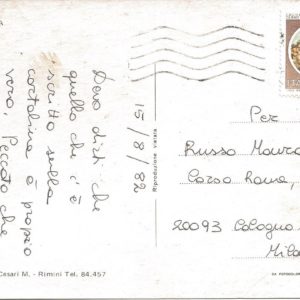 15/8/82
Devo dirti che
quello che c'è
scritto sulla
cartolina è proprio
vero. Peccato che
Per
Russo Maura
Corso Roma,
20093 Cologno
Mila
Riproduzione vietata
Cesari M. - Rimini Tel. 84.457